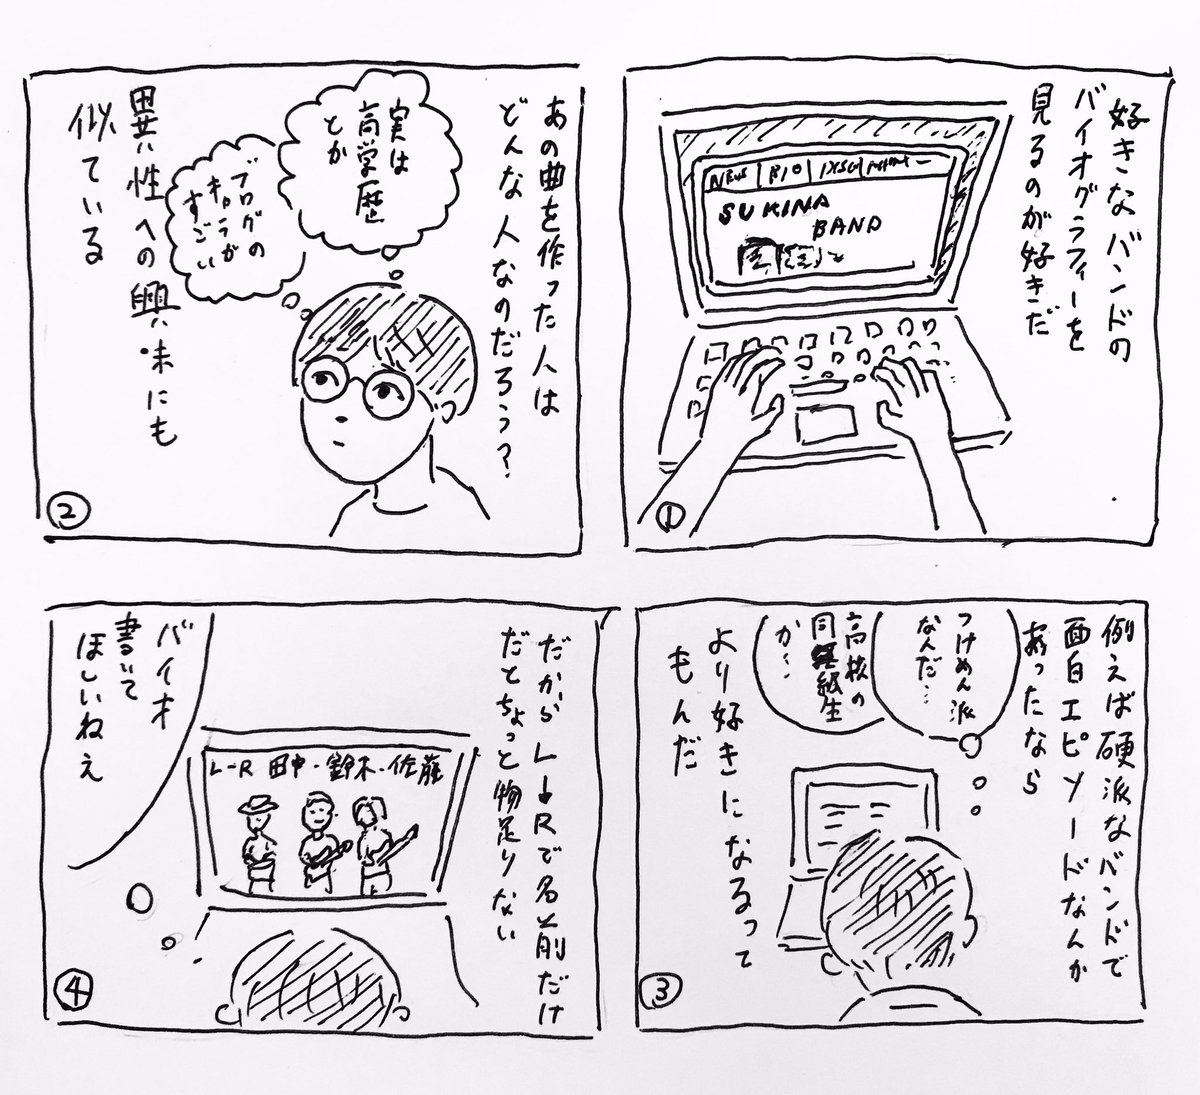 好きなバンドの
バイオグラフィーを
見るのが好きだ
NEWS
BIO
SUKINA
BAND
①
あの曲を作った人は
どんな人なのだろう?
実は
高学歴
とか
ブログの
キャラが
すごい
異性への興味にも
似ている
②
例えば硬派なバンドで
面白エピソードなんか
あったなら
つけめん派
なんだ…
高校の
同級生
か…
より好きになるって
もんだ
③
だからL→Rで名前だけ
だとちょっと物足りない
L-R 田中・鈴木・佐藤
バイオ
書いて
ほしいねえ
④